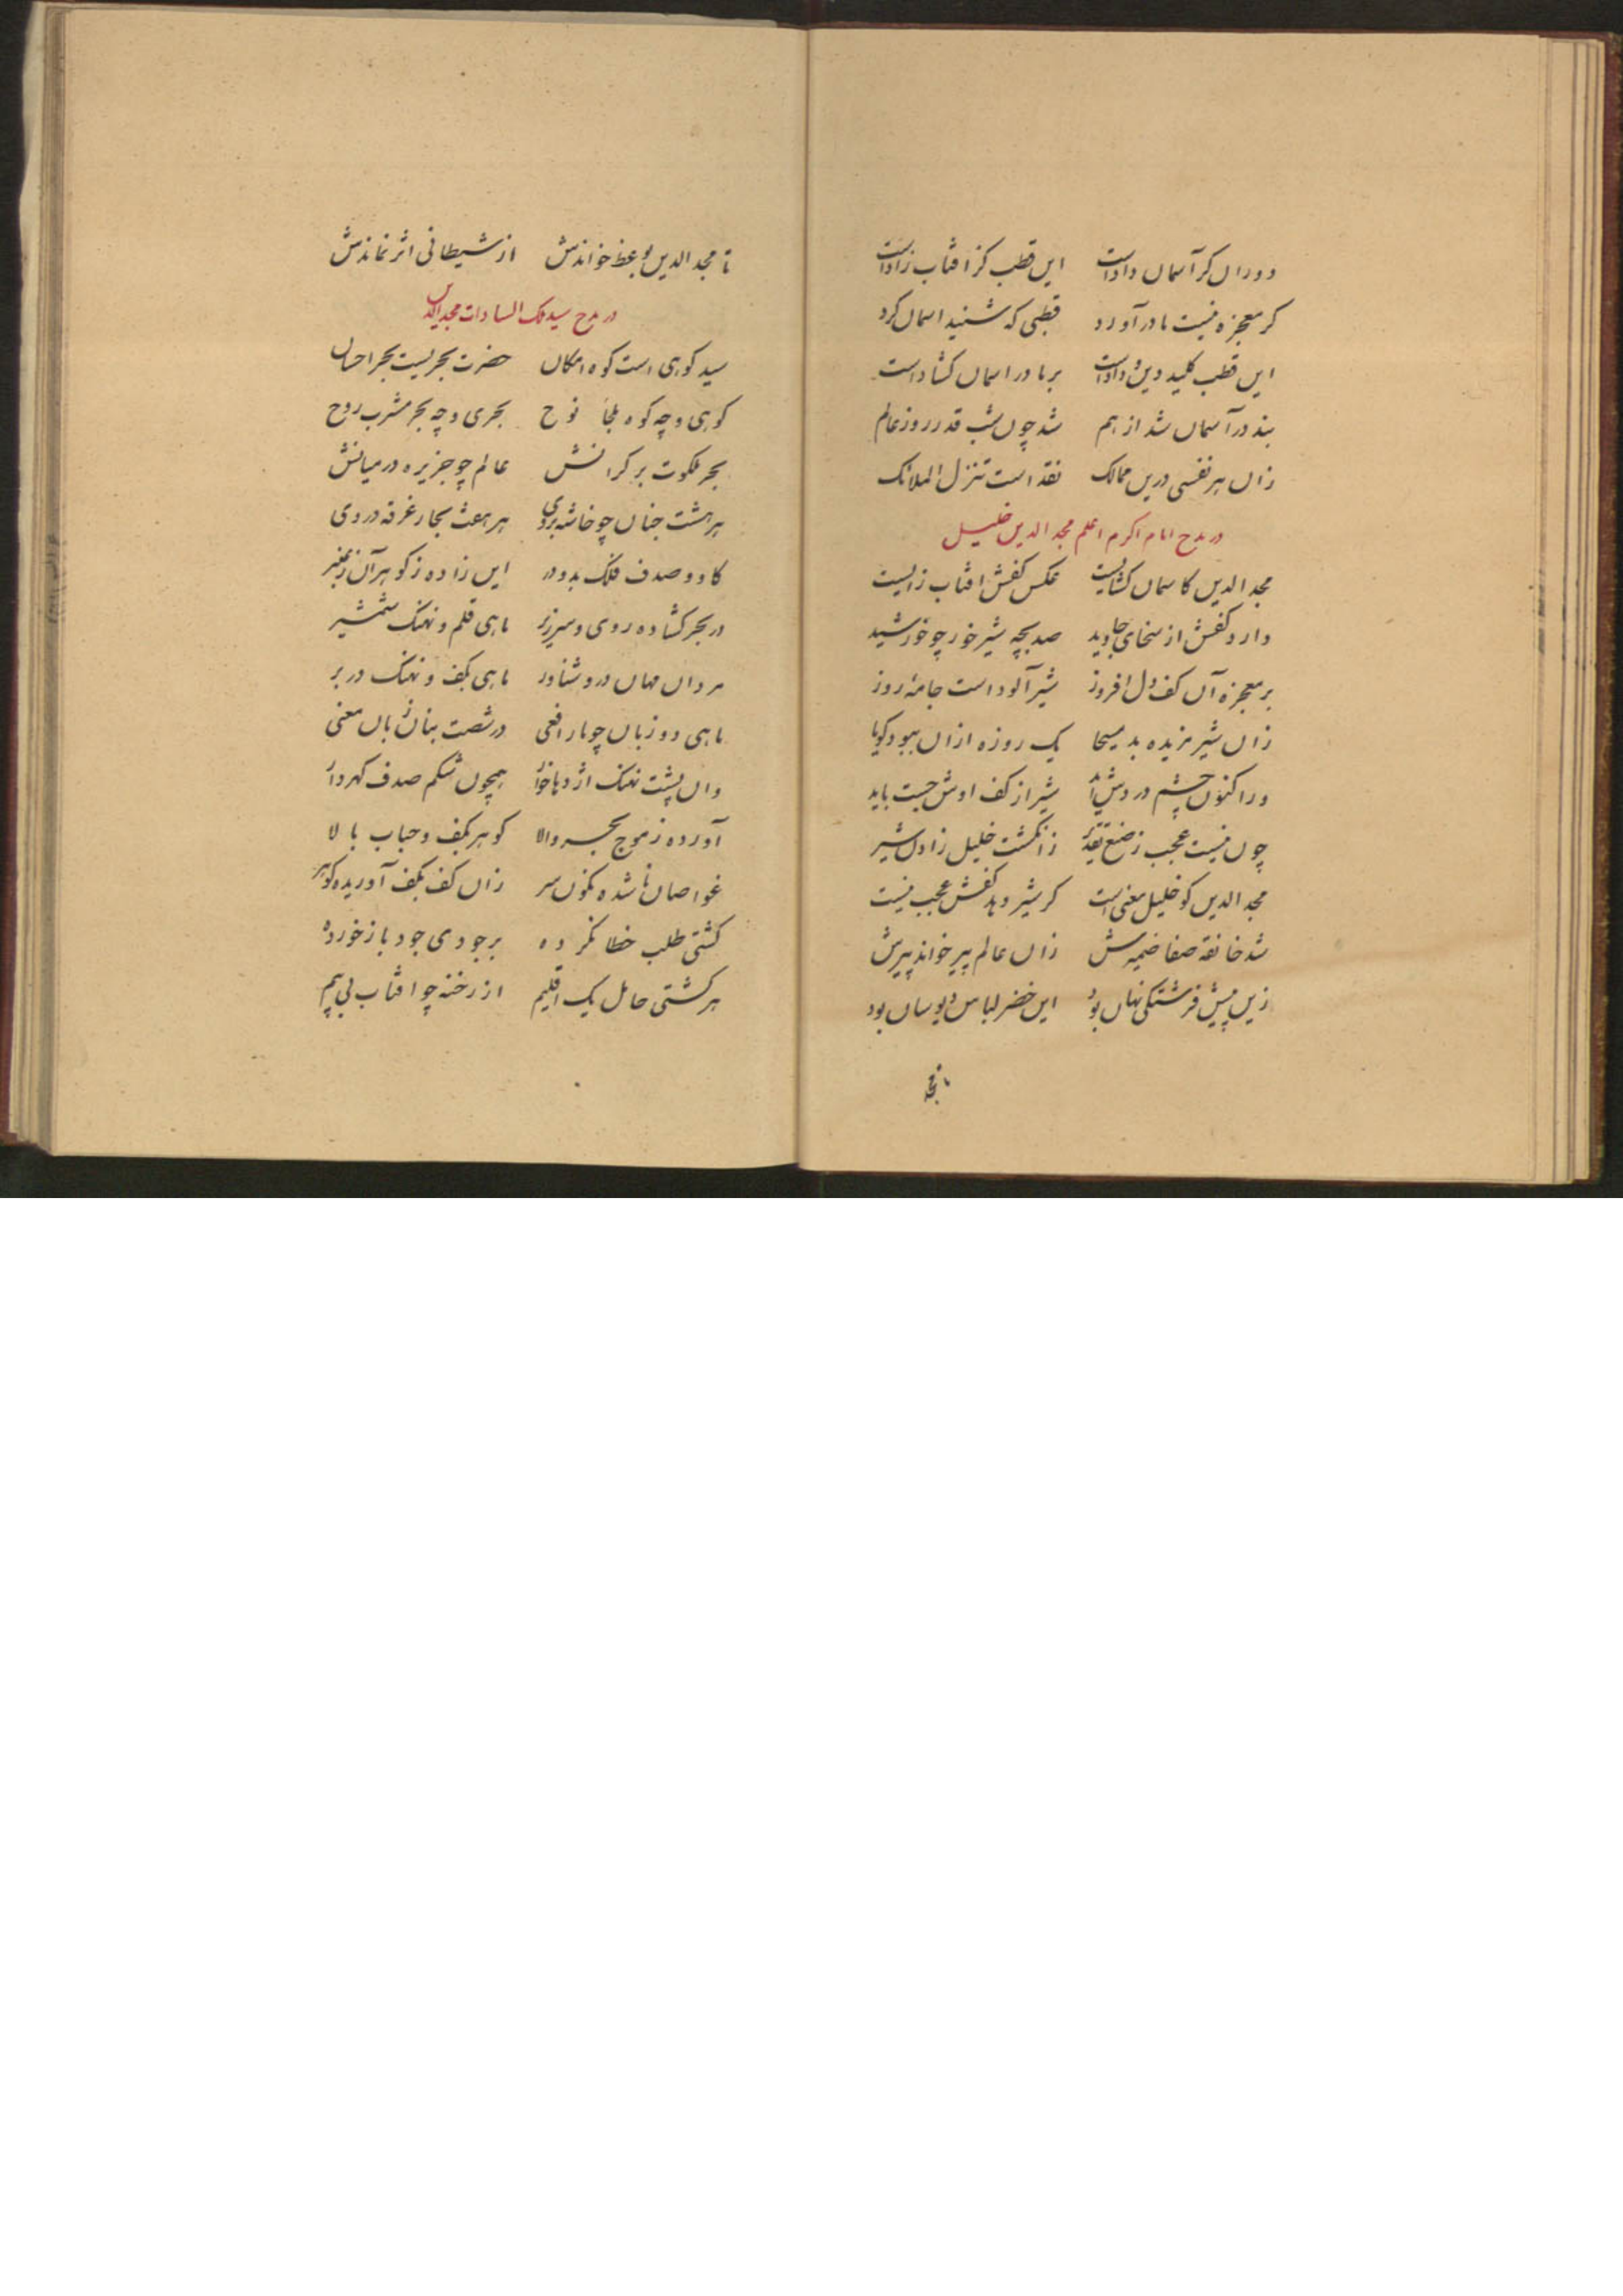 دوران کر آسمان دادست این قطب کز افتاب زادست
کر معجزه نیست مادر آورد قطبی که شنید اسمان کرد
این قطب کلید دین و دادست بر ما در اسمان کشادست
بند در آسمان شد از هم شد چون شب قدر روز عالم
زان هر نفسی درین ممالک نقد است تنزل الملائک
در مدح امام اکرم اعلم مجد الدین خلیل
مجد الدین کاسمان کشایست عکس کفش افتاب زایست
دارد کفش از سخای جاوید صد بچه شیر خور چو خورشید
بر معجزه آن کف دل افروز شیر آلود است جامه روز
زان شیر مزیده بد مسیحا یک روزه ازان ببود کویا
ورا کنون چشم در دش شیر از کف اوش جست باید
چون نیست عجب ز صنع تقدیر زانکشت خلیل زادن شیر
مجد الدین کو خلیل معنی است کر شیر دهد کفش عجب نیست
شد خانقه صفا ضمیرش زان عالم پیر خواند پیرش
زین پیش فرشتکی نهان بود این خضر لباس دیوسان بود
تا مجد
تا مجد الدین بوعظ خواندش از شیطانی اثر نماندش
در مدح سید ملک السادات مجد الدین
سید کوهی است کوه امکان حضرت بحریست بحر احسان
کوهی و چه کوه ملجا نوح بحری و چه بحر مشرب روح
بحر ملکوت بر کرانش عالم چو جزیره در میانش
هر هشت جنان چو خاشه بر وی هر هفت بحار غرقه در وی
کاو و صدف فلک بدو در این زاده ز کوهر آن ز عنبر
در بحر کشاده روی و سر زیر ماهی قلم و نهنک شمشیر
مردان مهان درو شناور ماهی بکف و نهنک در بر
ماهی دو زبان چو مار افعی در شصت بنان زبان معنی
وان پشت نهنک اژدها خوار همچون شکم صدف کهردار
آورده ز موج بحر والا کوهر بکف و حباب بالا
غواصان نا شده نکون سر زان کف بکف آوریده کوهر
کشتی طلب خطا نکرده بر جودی جود باز خورده
هر کشتی حامل یک اقلیم از رخنه چو افتاب بی بیم